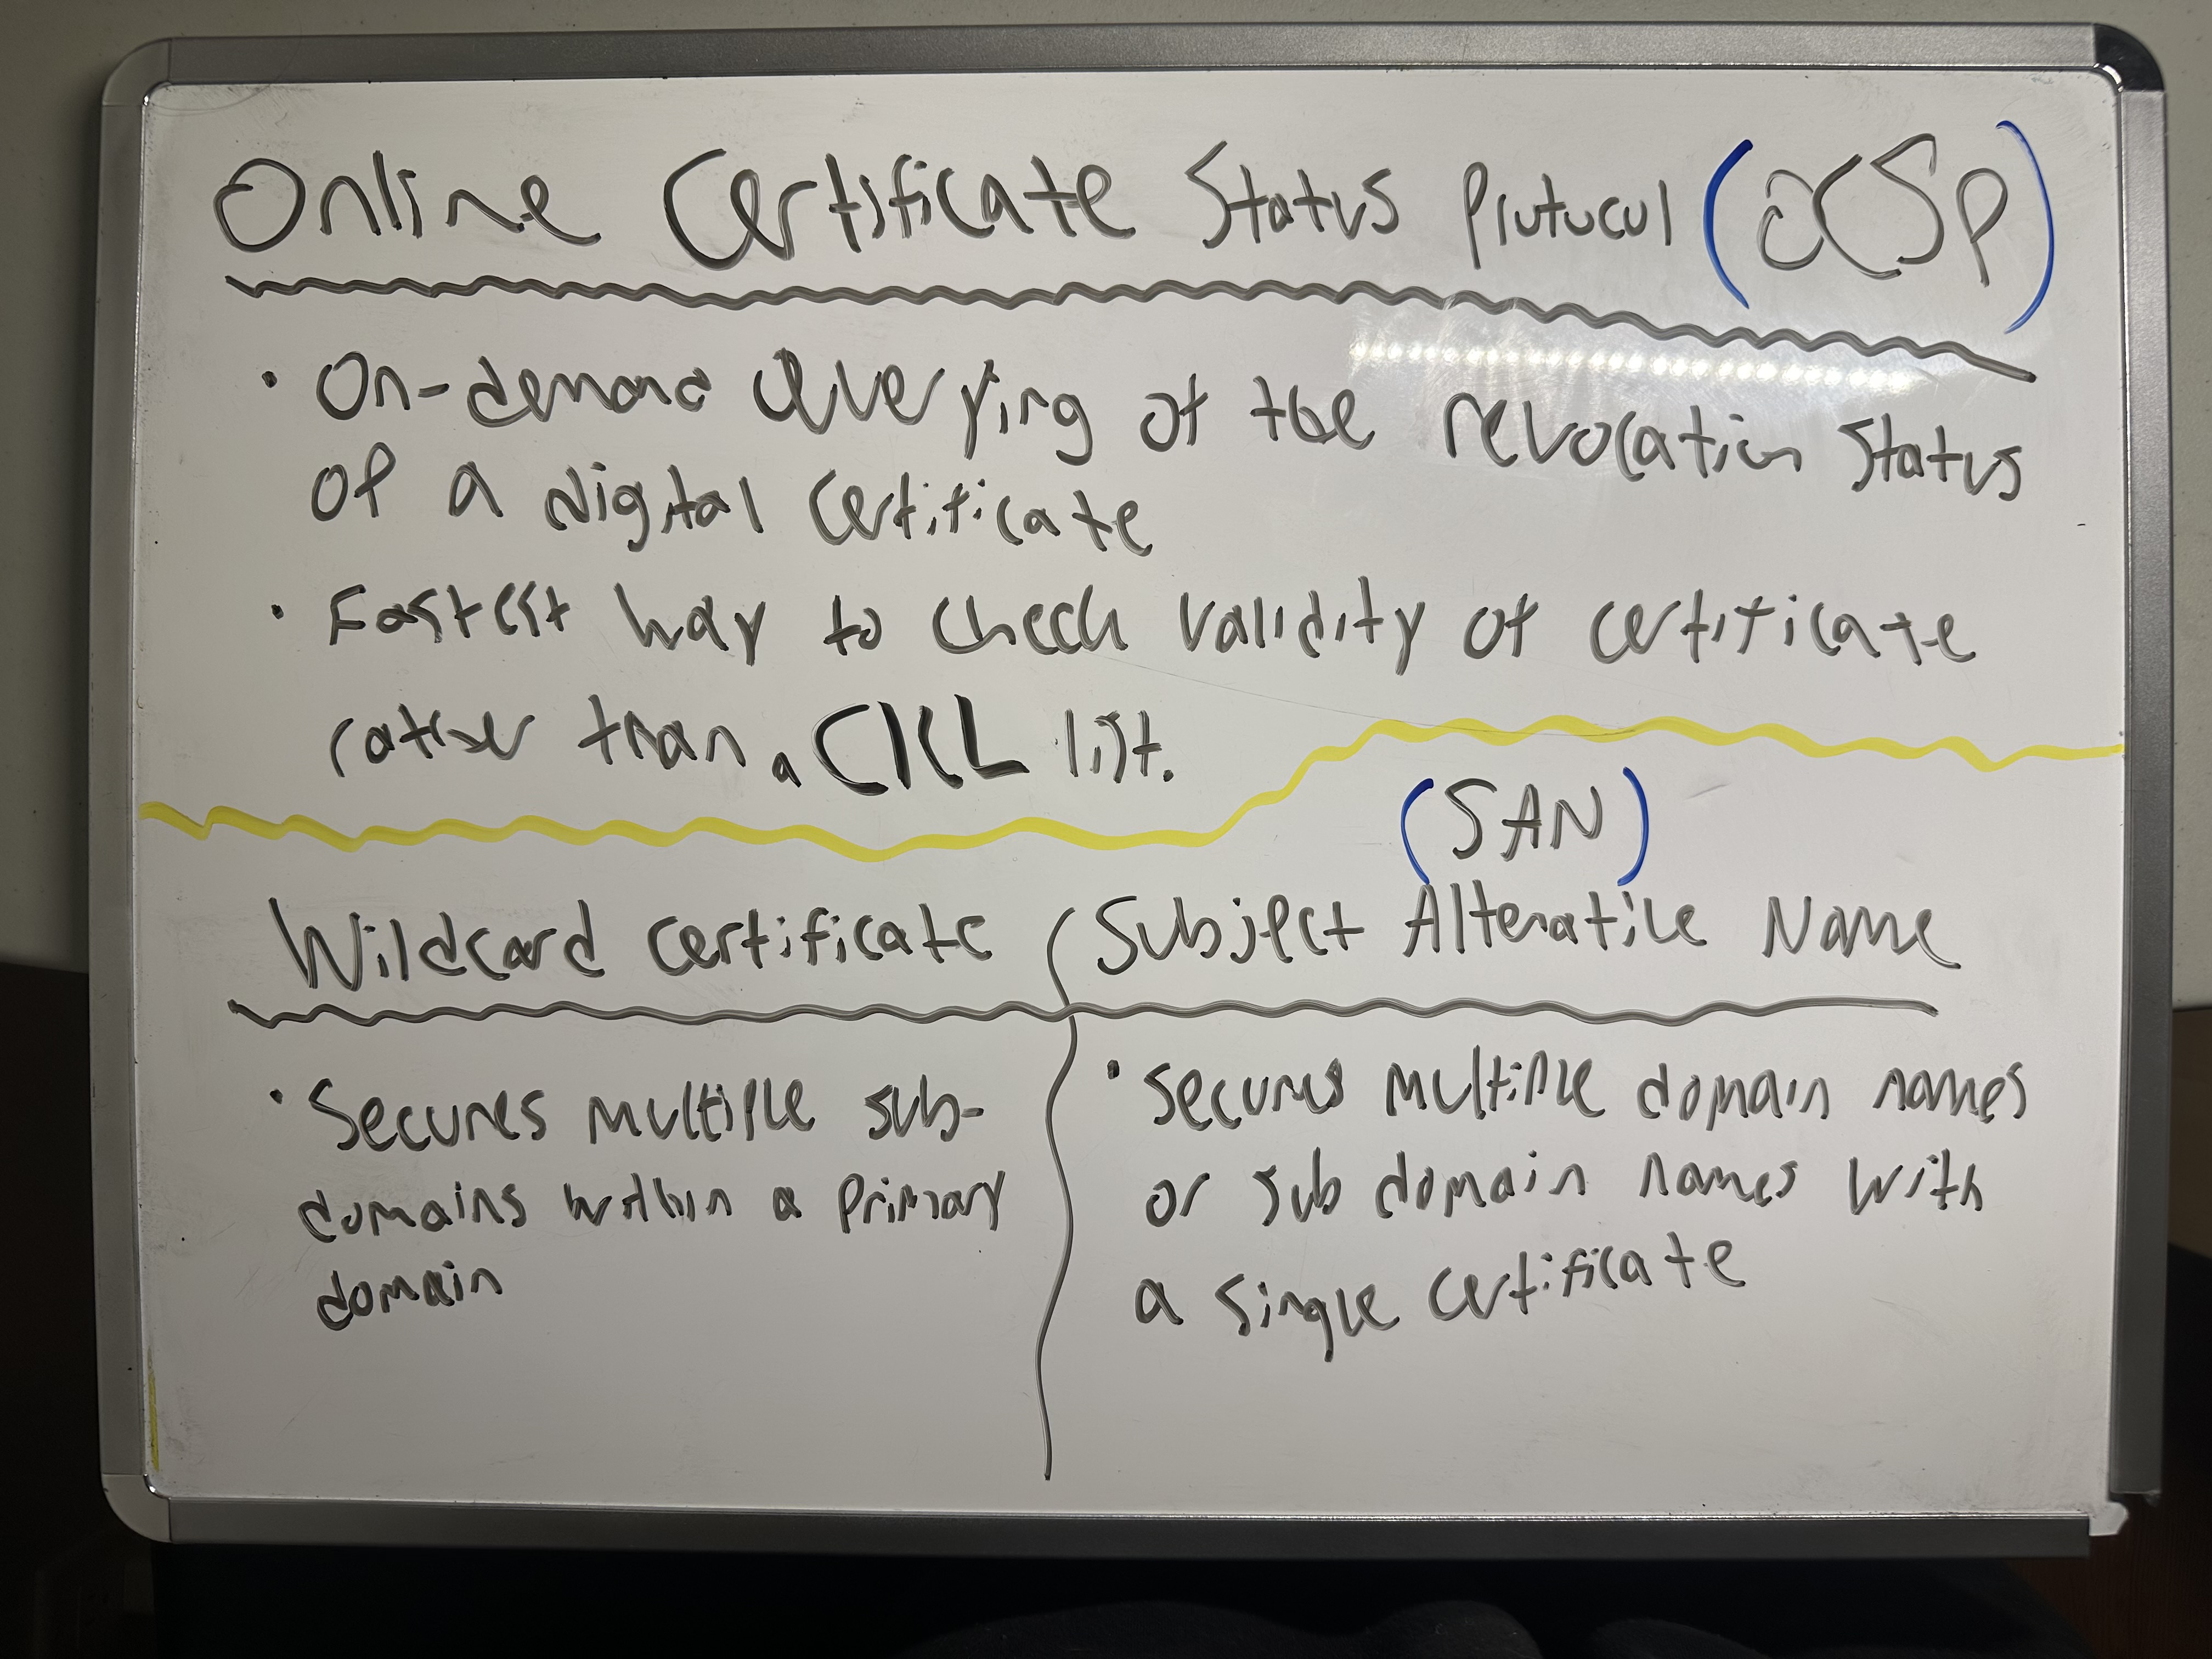 Online Certificate Status Protocol (OCSP)
• On-demand Querying of the revocation status
of a digital certificate
• Fastest way to check validity of certificate
rather than a CRL list.
(SAN)
Wildcard Certificate
Subject Alterative Name
• Secures multiple sub-
domains within a primary
domain
• Secures multiple domain names
or sub domain names with
a single certificate